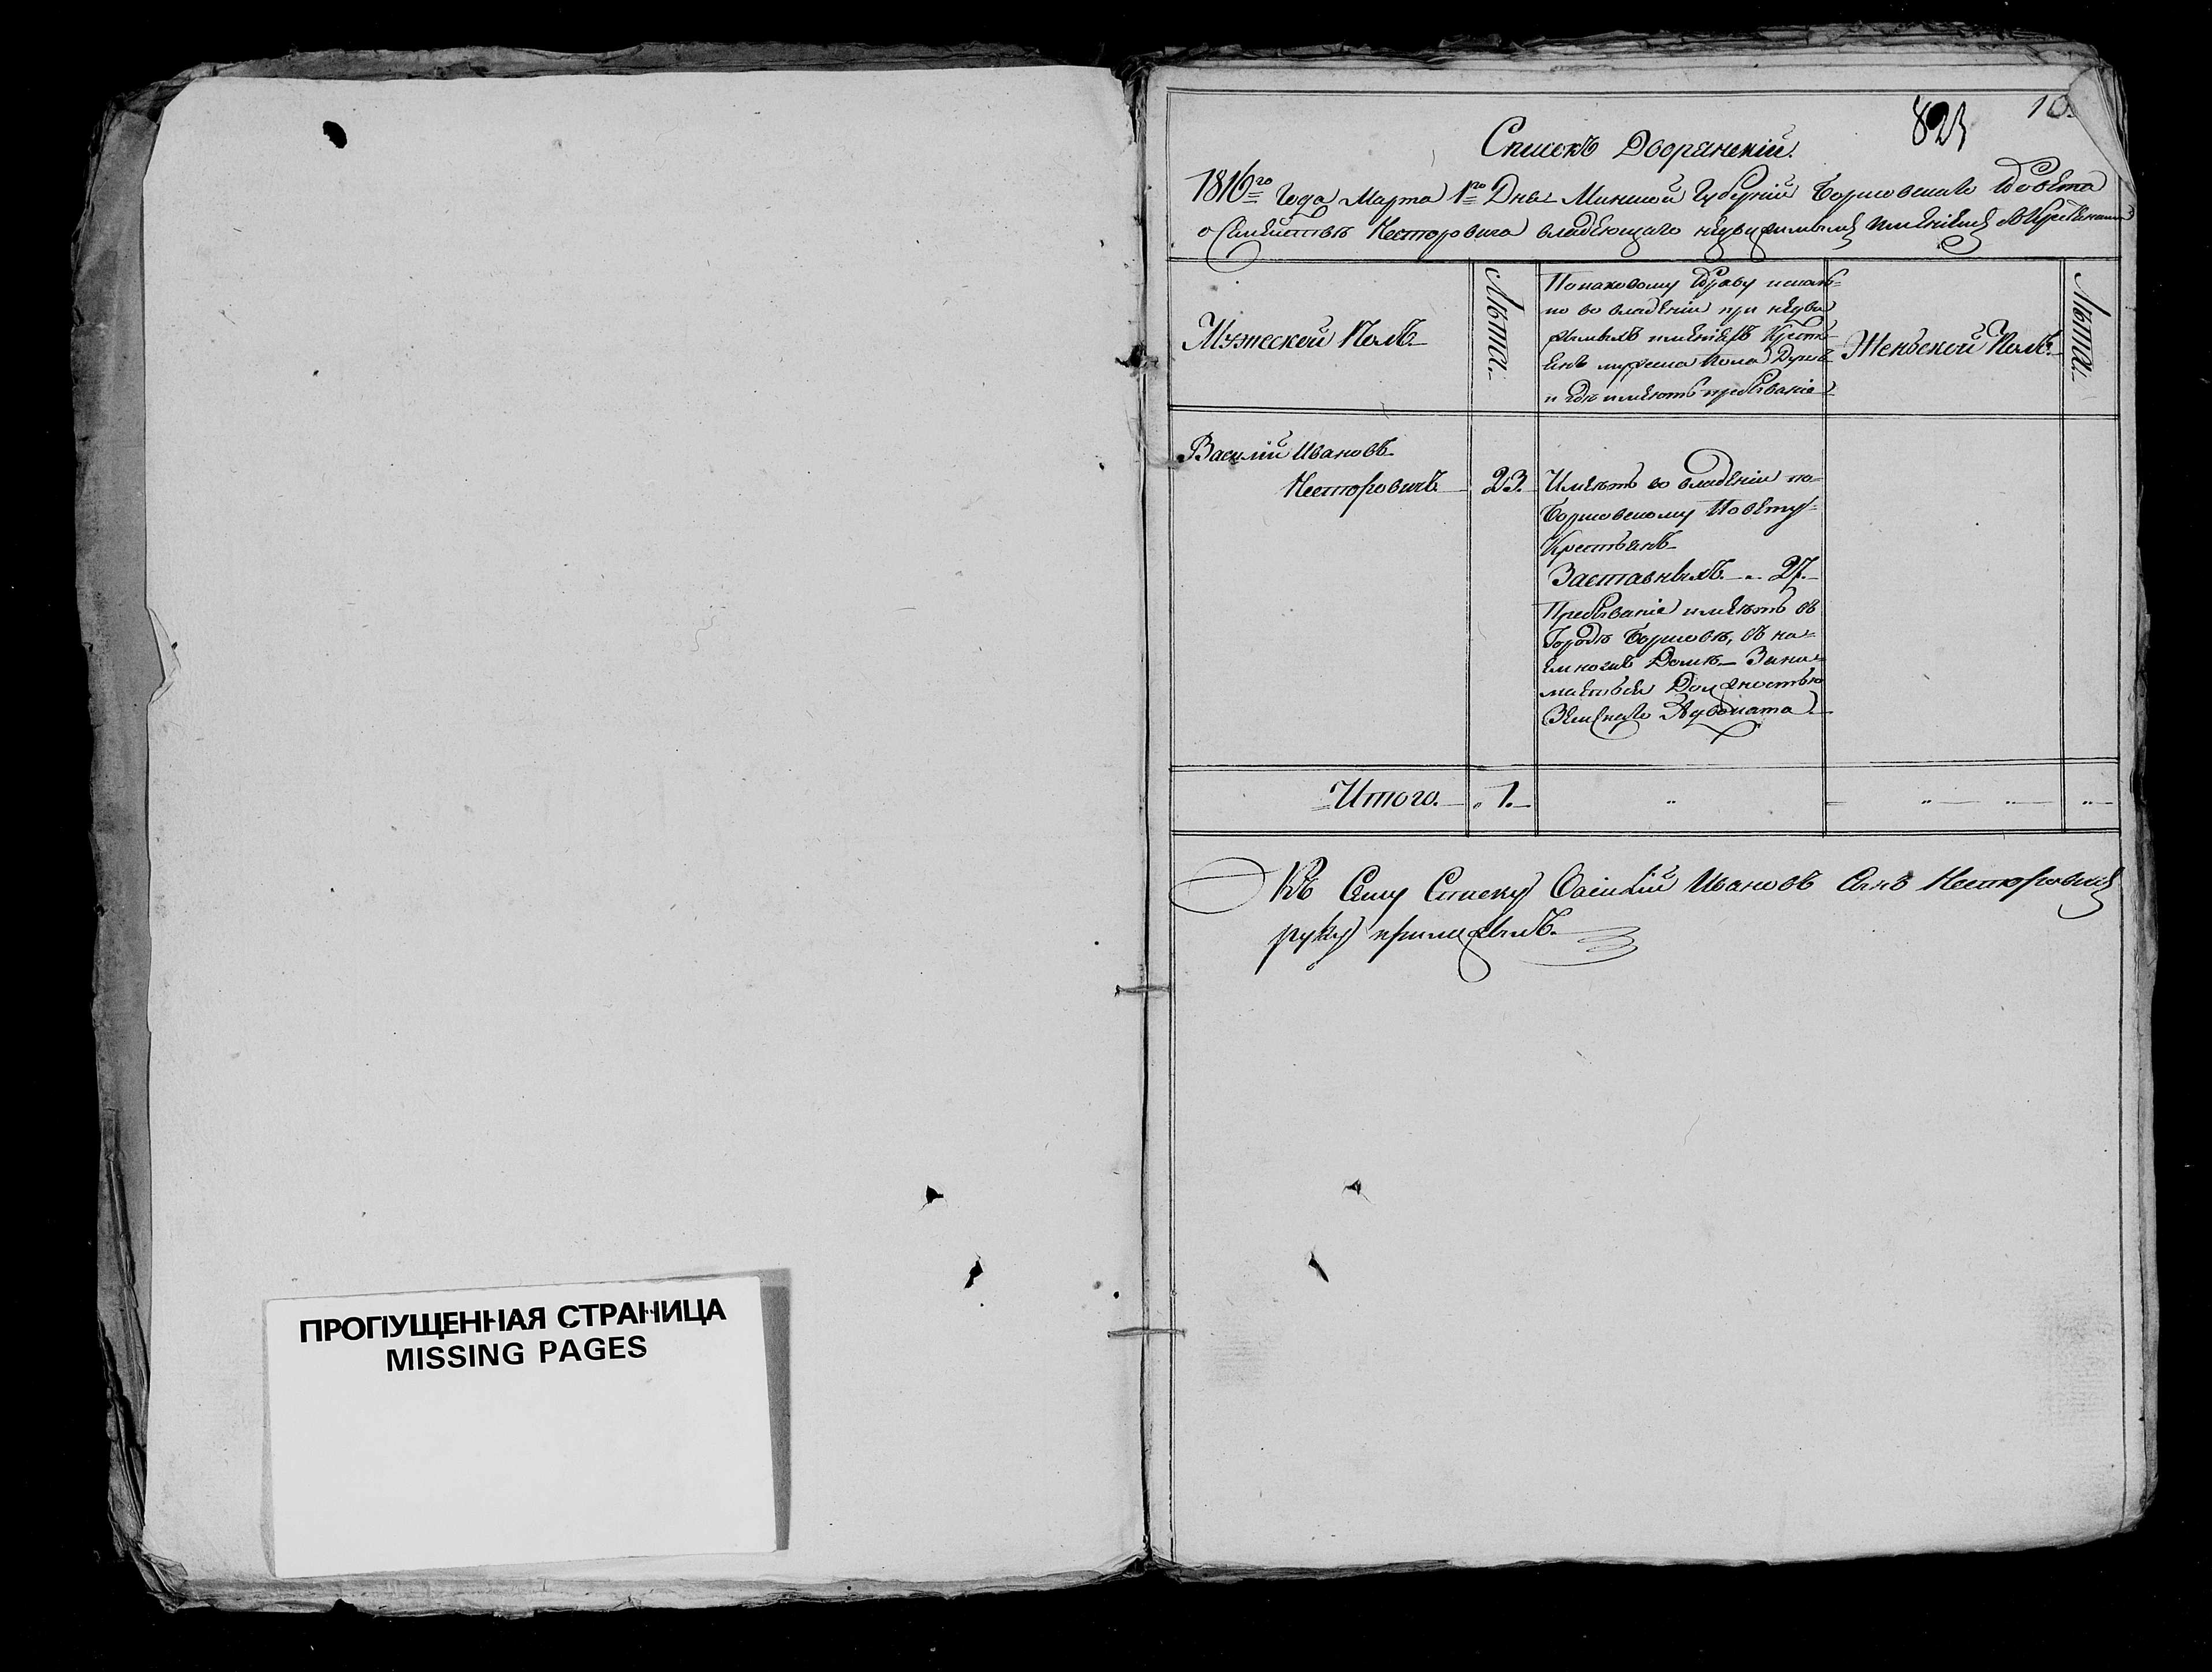 ПРОПУЩЕННАЯ СТРАНИЦА
MISSING PAGES
823
10.
Списокъ Дворянскій.
1816го Года Марта 1го Дня Минской Губерніи Борисовскаго Повѣта
о Семействѣ Несторовича владѣющаго недвижимымъ имѣніемъ
Мужеской Полъ
Лѣта.
По какому Праву
но во владѣніи при недви
жимыхъ имѣніяхъ Кресть
янъ мужеска пола Душъ
и гдѣ имѣютъ пребываніе
Женской Полъ.
Лѣта.
Василій Ивановъ
Несторовичъ
23.
Имѣетъ во владѣніи по
Борисовскому Повѣту
Крестьянъ
Заставныхъ 27.
Пребываніе имѣетъ въ
Городѣ Борисовѣ, въ на=
емномъ Домѣ Зани=
мается Должностью
Земскаго Адвоката
Итого.
1.
Къ Сему Списку Василій Ивановъ Сынъ Несторовичъ
руку приложилъ.